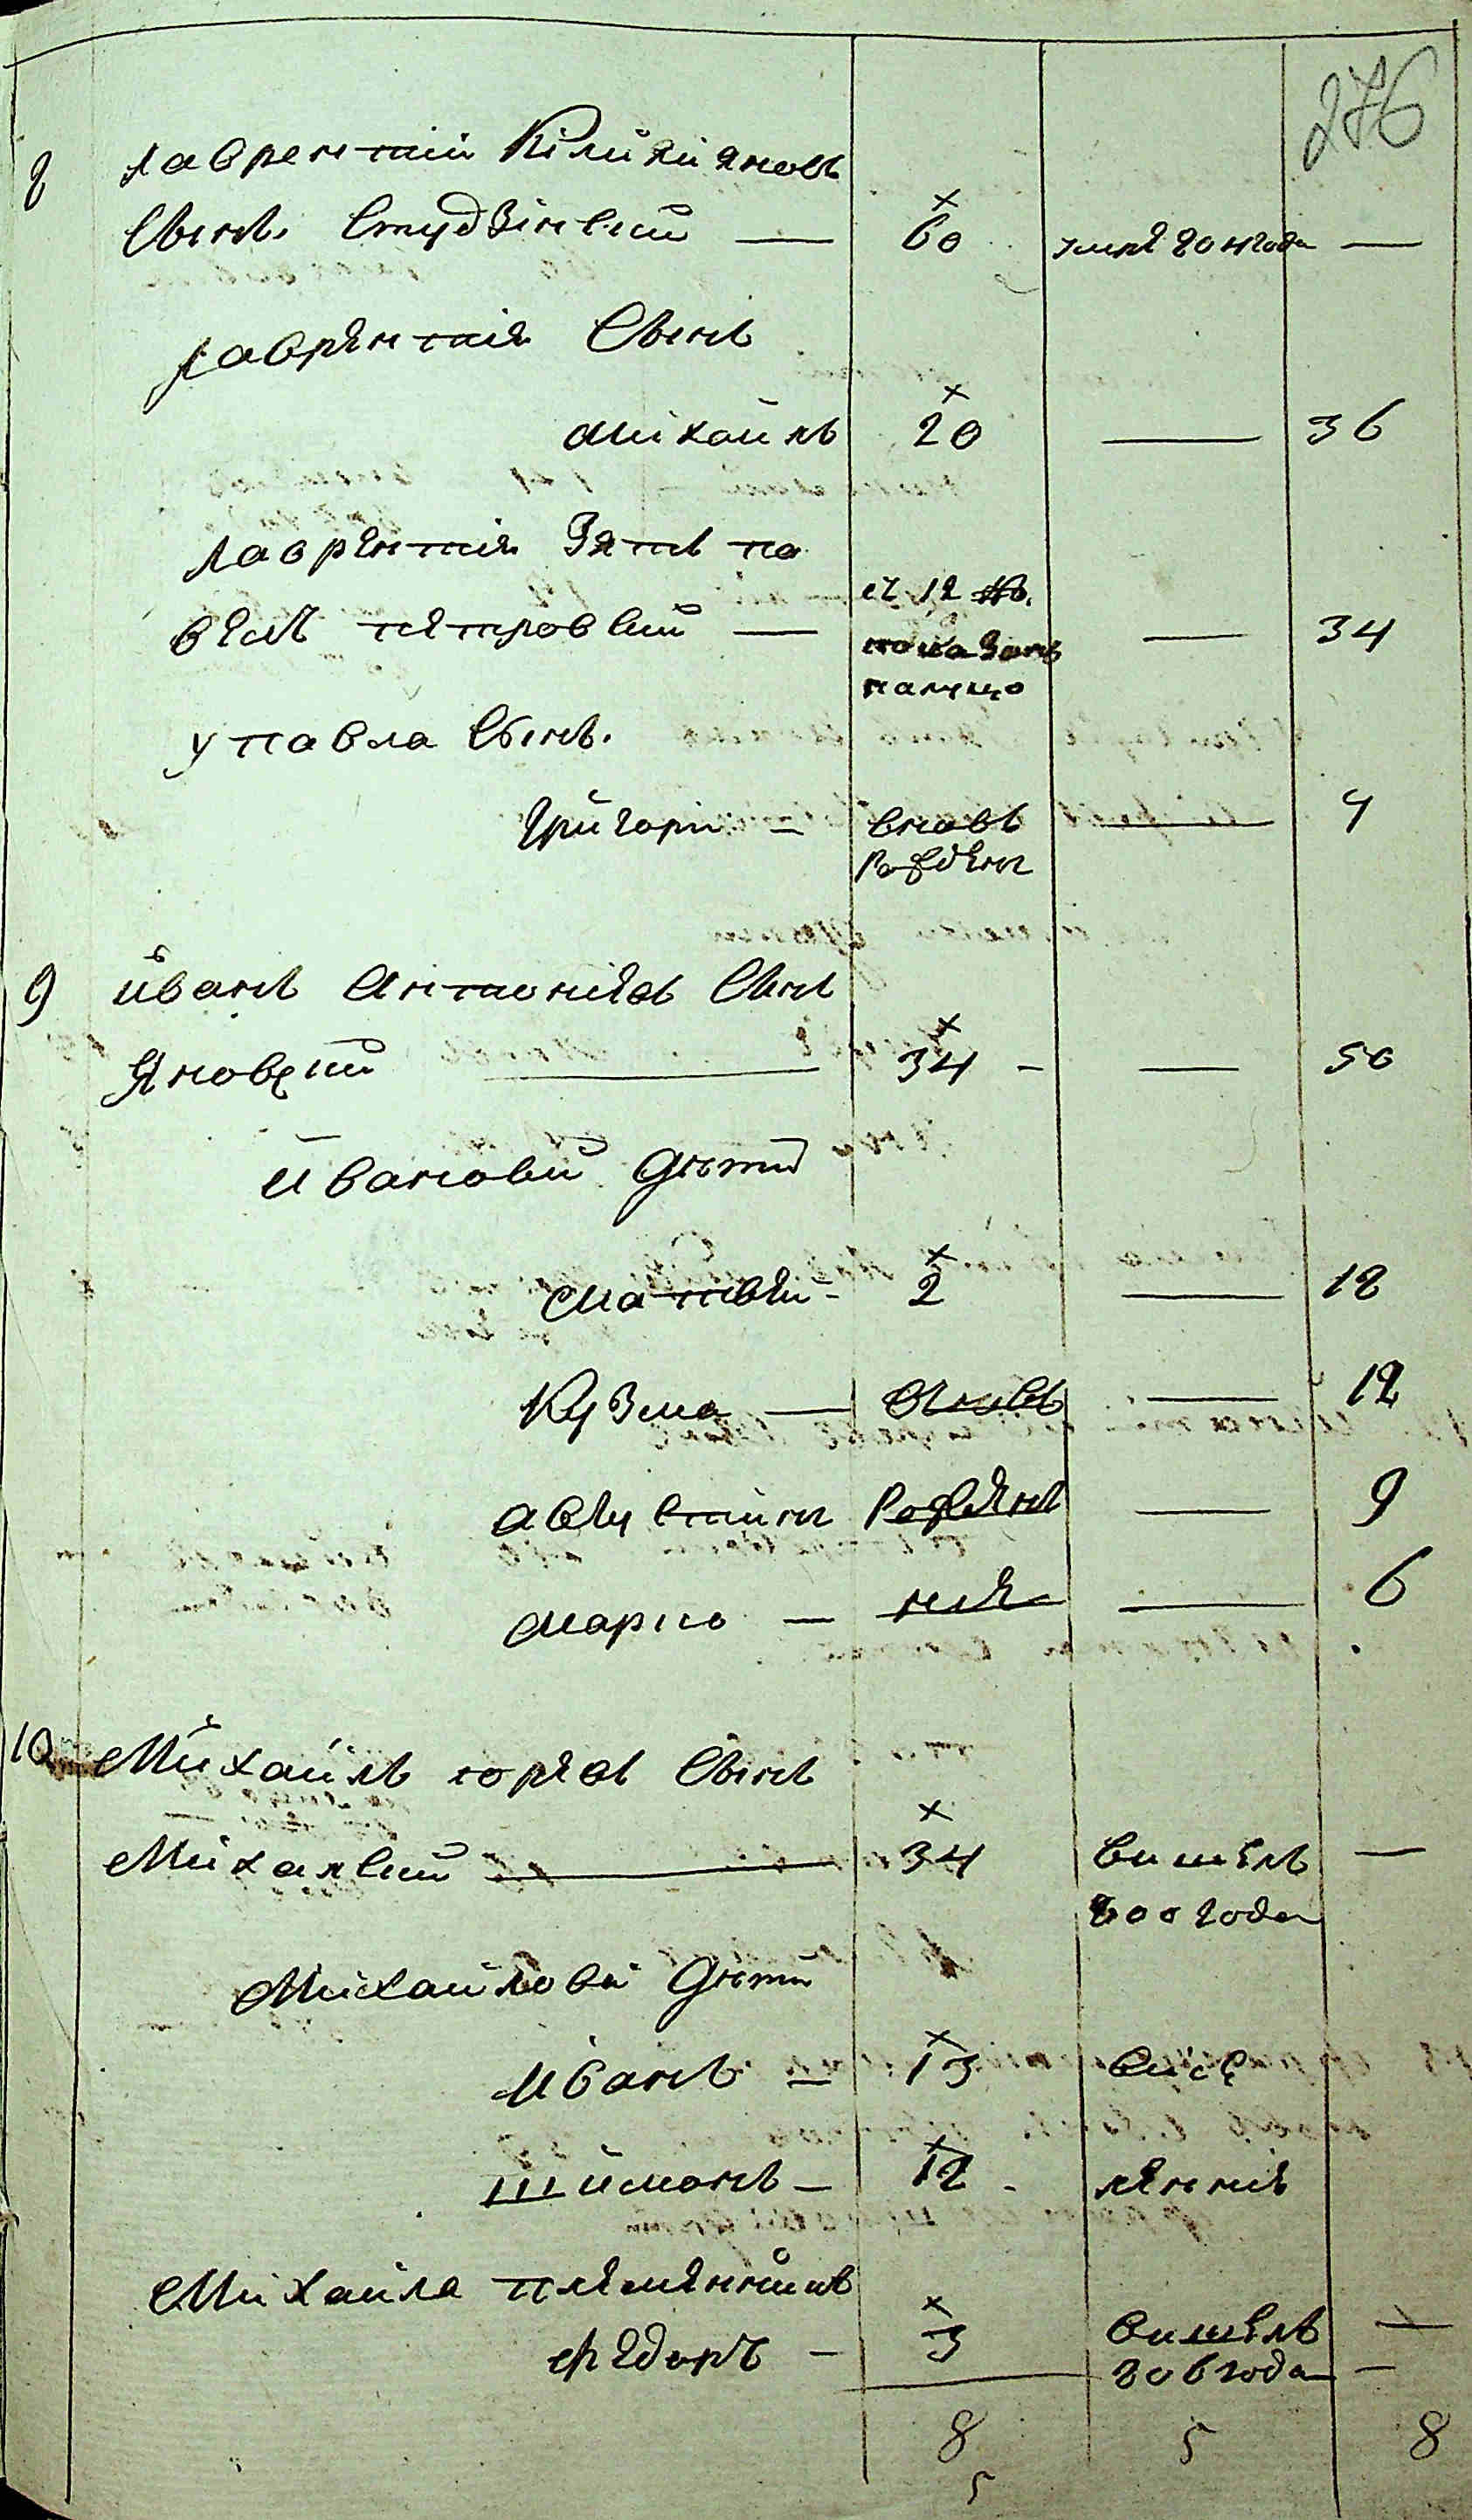 276
8 Лаврентий Килиянов
Сынъ Студзинский — 60 умре 804 года —
Лаврентия Сынъ
Михайлъ 20 — 36
Лаврентия Зять па
велъ петровский — — 34
показанъ
у павла Сынъ.
Григори — вновь — 4
рожденъ
9 иванъ Антониевъ Сынъ
Яновский — 34 — — 50
ивановы дѣти
матвей — 2 — 18
Кузма — вновь — 12
августинъ рожден — 9
марко — ные — 6
10 Михайлъ юревъ Сынъ
Михалский — 34 вишелъ —
800 года
Михайловы дѣти
иванъ — 13
шимонъ — 12
Михайла племянникъ
федоръ — 3 вишелъ —
806 года —
8 5 8
5